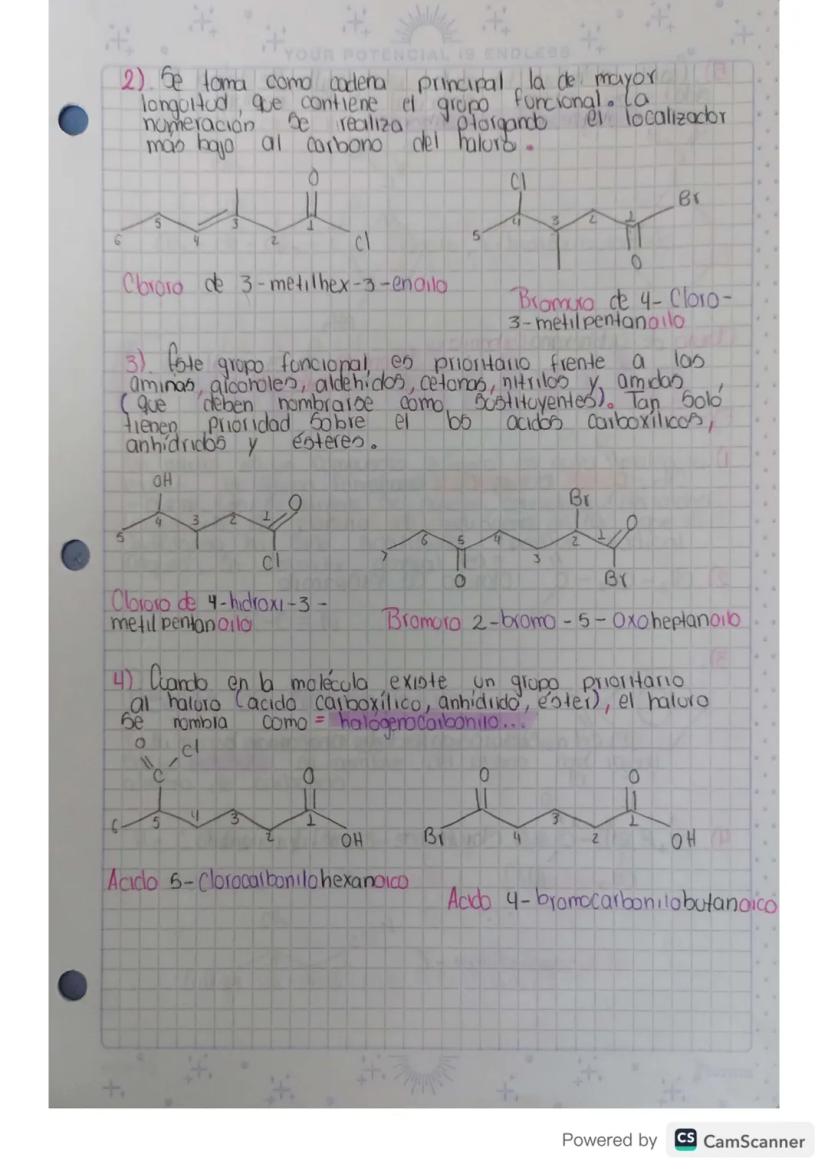 YOUR POTENCIAL IS ENDLESS
2). Se toma como cadena principal la de mayor
longuitud, que contiene el grupo funcional. La
numeración se realiza otorgando el localizador
más bajo al carbono del haluro.
O
Cl
6 5 4 3 2 1
Cl
Br
5 4 3 2 1
O
Cloruro de 3-metilhex-3-enoilo
Bromuro de 4-Cloro-
3-metilpentanoilo
3) Este grupo funcional, es prioritario frente a las
aminas, alcoholes, aldehídos, cetonas, nitrilos y amidas
(que deben nombrarse como sustituyentes). Tan solo
tienen prioridad sobre el los acidos carboxílicos,
anhídridos y ésteres.
OH
O
5 4 3 2 1
Cl
Br
O
7 6 5 4 3 2 1
O
Br
Cloruro de 4-hidroxi-3-
metilpentanoilo
Bromuro 2-bromo-5-oxoheptanoilo
4) Cuando en la molécula existe un grupo prioritario
al haluro (acido carboxílico, anhídrido, éster), el haluro
se nombra como = halógenocarbonilo...
O
Cl
C
O
6 5 4 3 2 1
OH
O
O
Br 4 3 2 1
OH
Acido 5-clorocarbonilohexanoico
Acido 4-bromocarbonilobutanoico
Powered by CS CamScanner